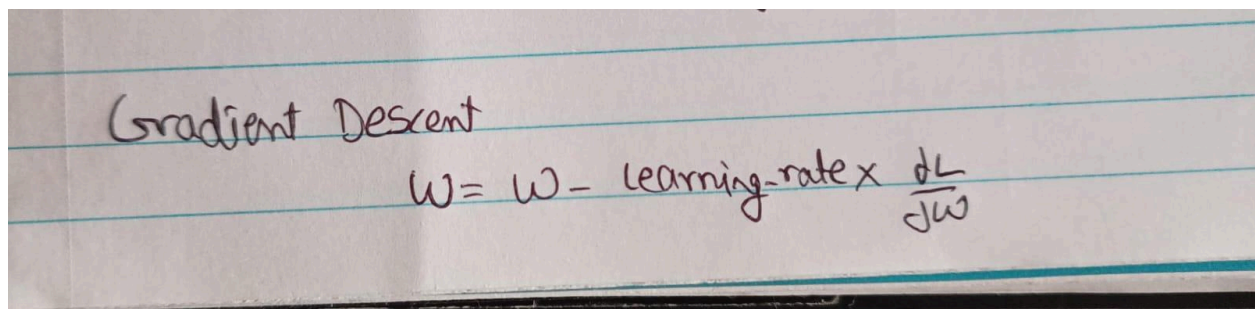 Gradient Descent
W = W - learning-rate x dL/dW